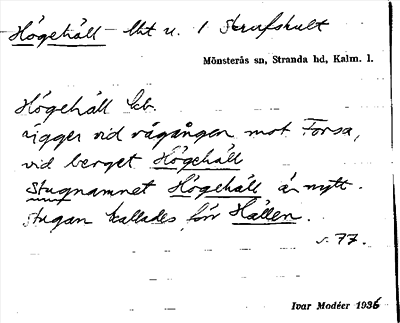 Högehäll – lht u. 1 Skrufshult
Mönsterås sn, Stranda hd, Kalm. l.
Högehäll lzb.
ligger vid vägången mot Forsa,
vid berget Högehäll
Stugnamnet Högehäll är nytt.
stugan kallades för Hällen.
s. 77.
Ivar Modéer 1936